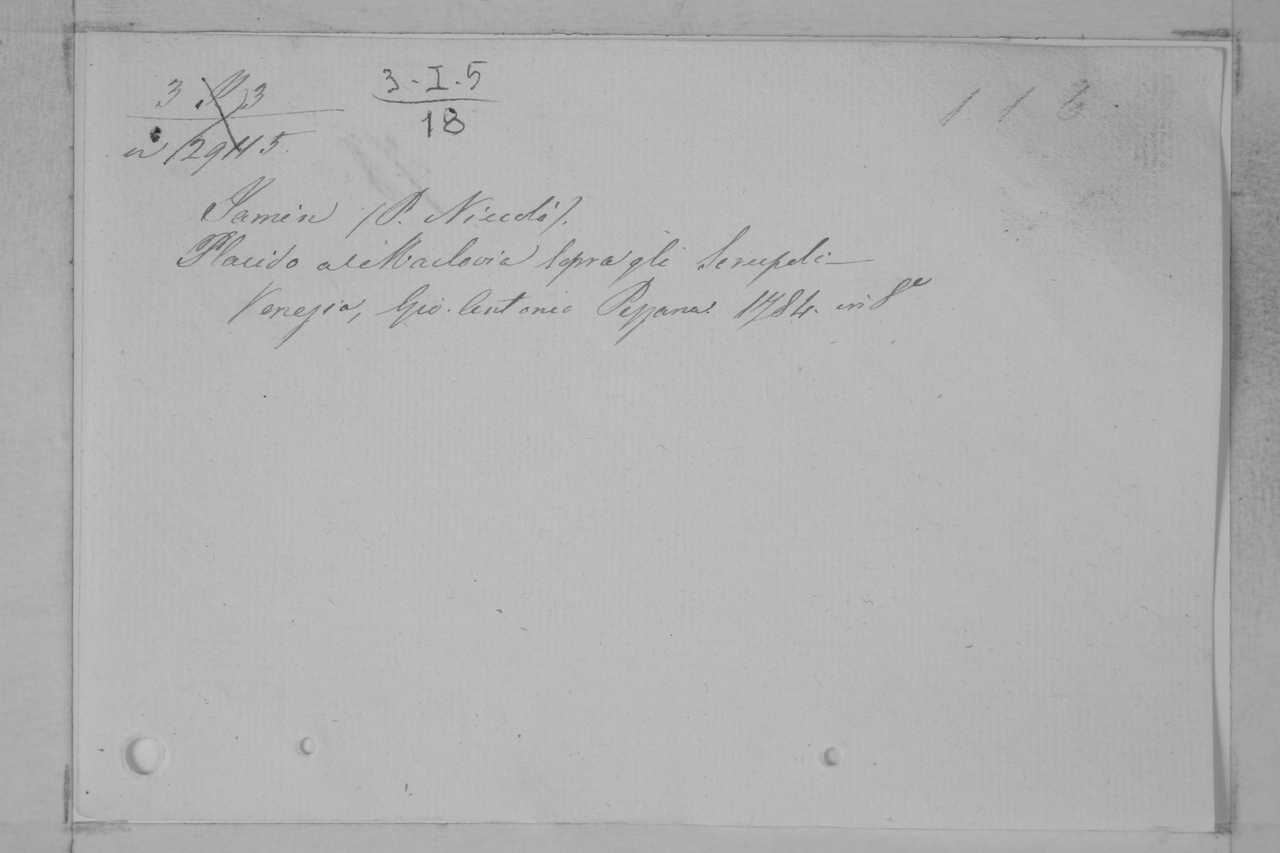 3 3
3-I-5
18
n 12945
116
Jamin (P. Niccolò).
Placido a Maclovia sopra gli Scrupoli
Venezia, Gio. Antonio Pezzana 1784. in 8º